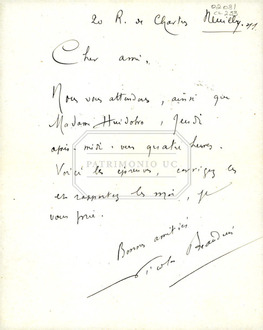 20 R. de Chartres Neuilly. s/s
Cher ami,
Nous vous attendons, ainsi que
Madam Huidobro, Jeudi
après-midi vers quatre heures.
Voici les épreuves, corrigez les
et rapportez les moi, je
vous prie.
PATRIMONIO UC
Bonnes amitiés
Nicolas Beauduin